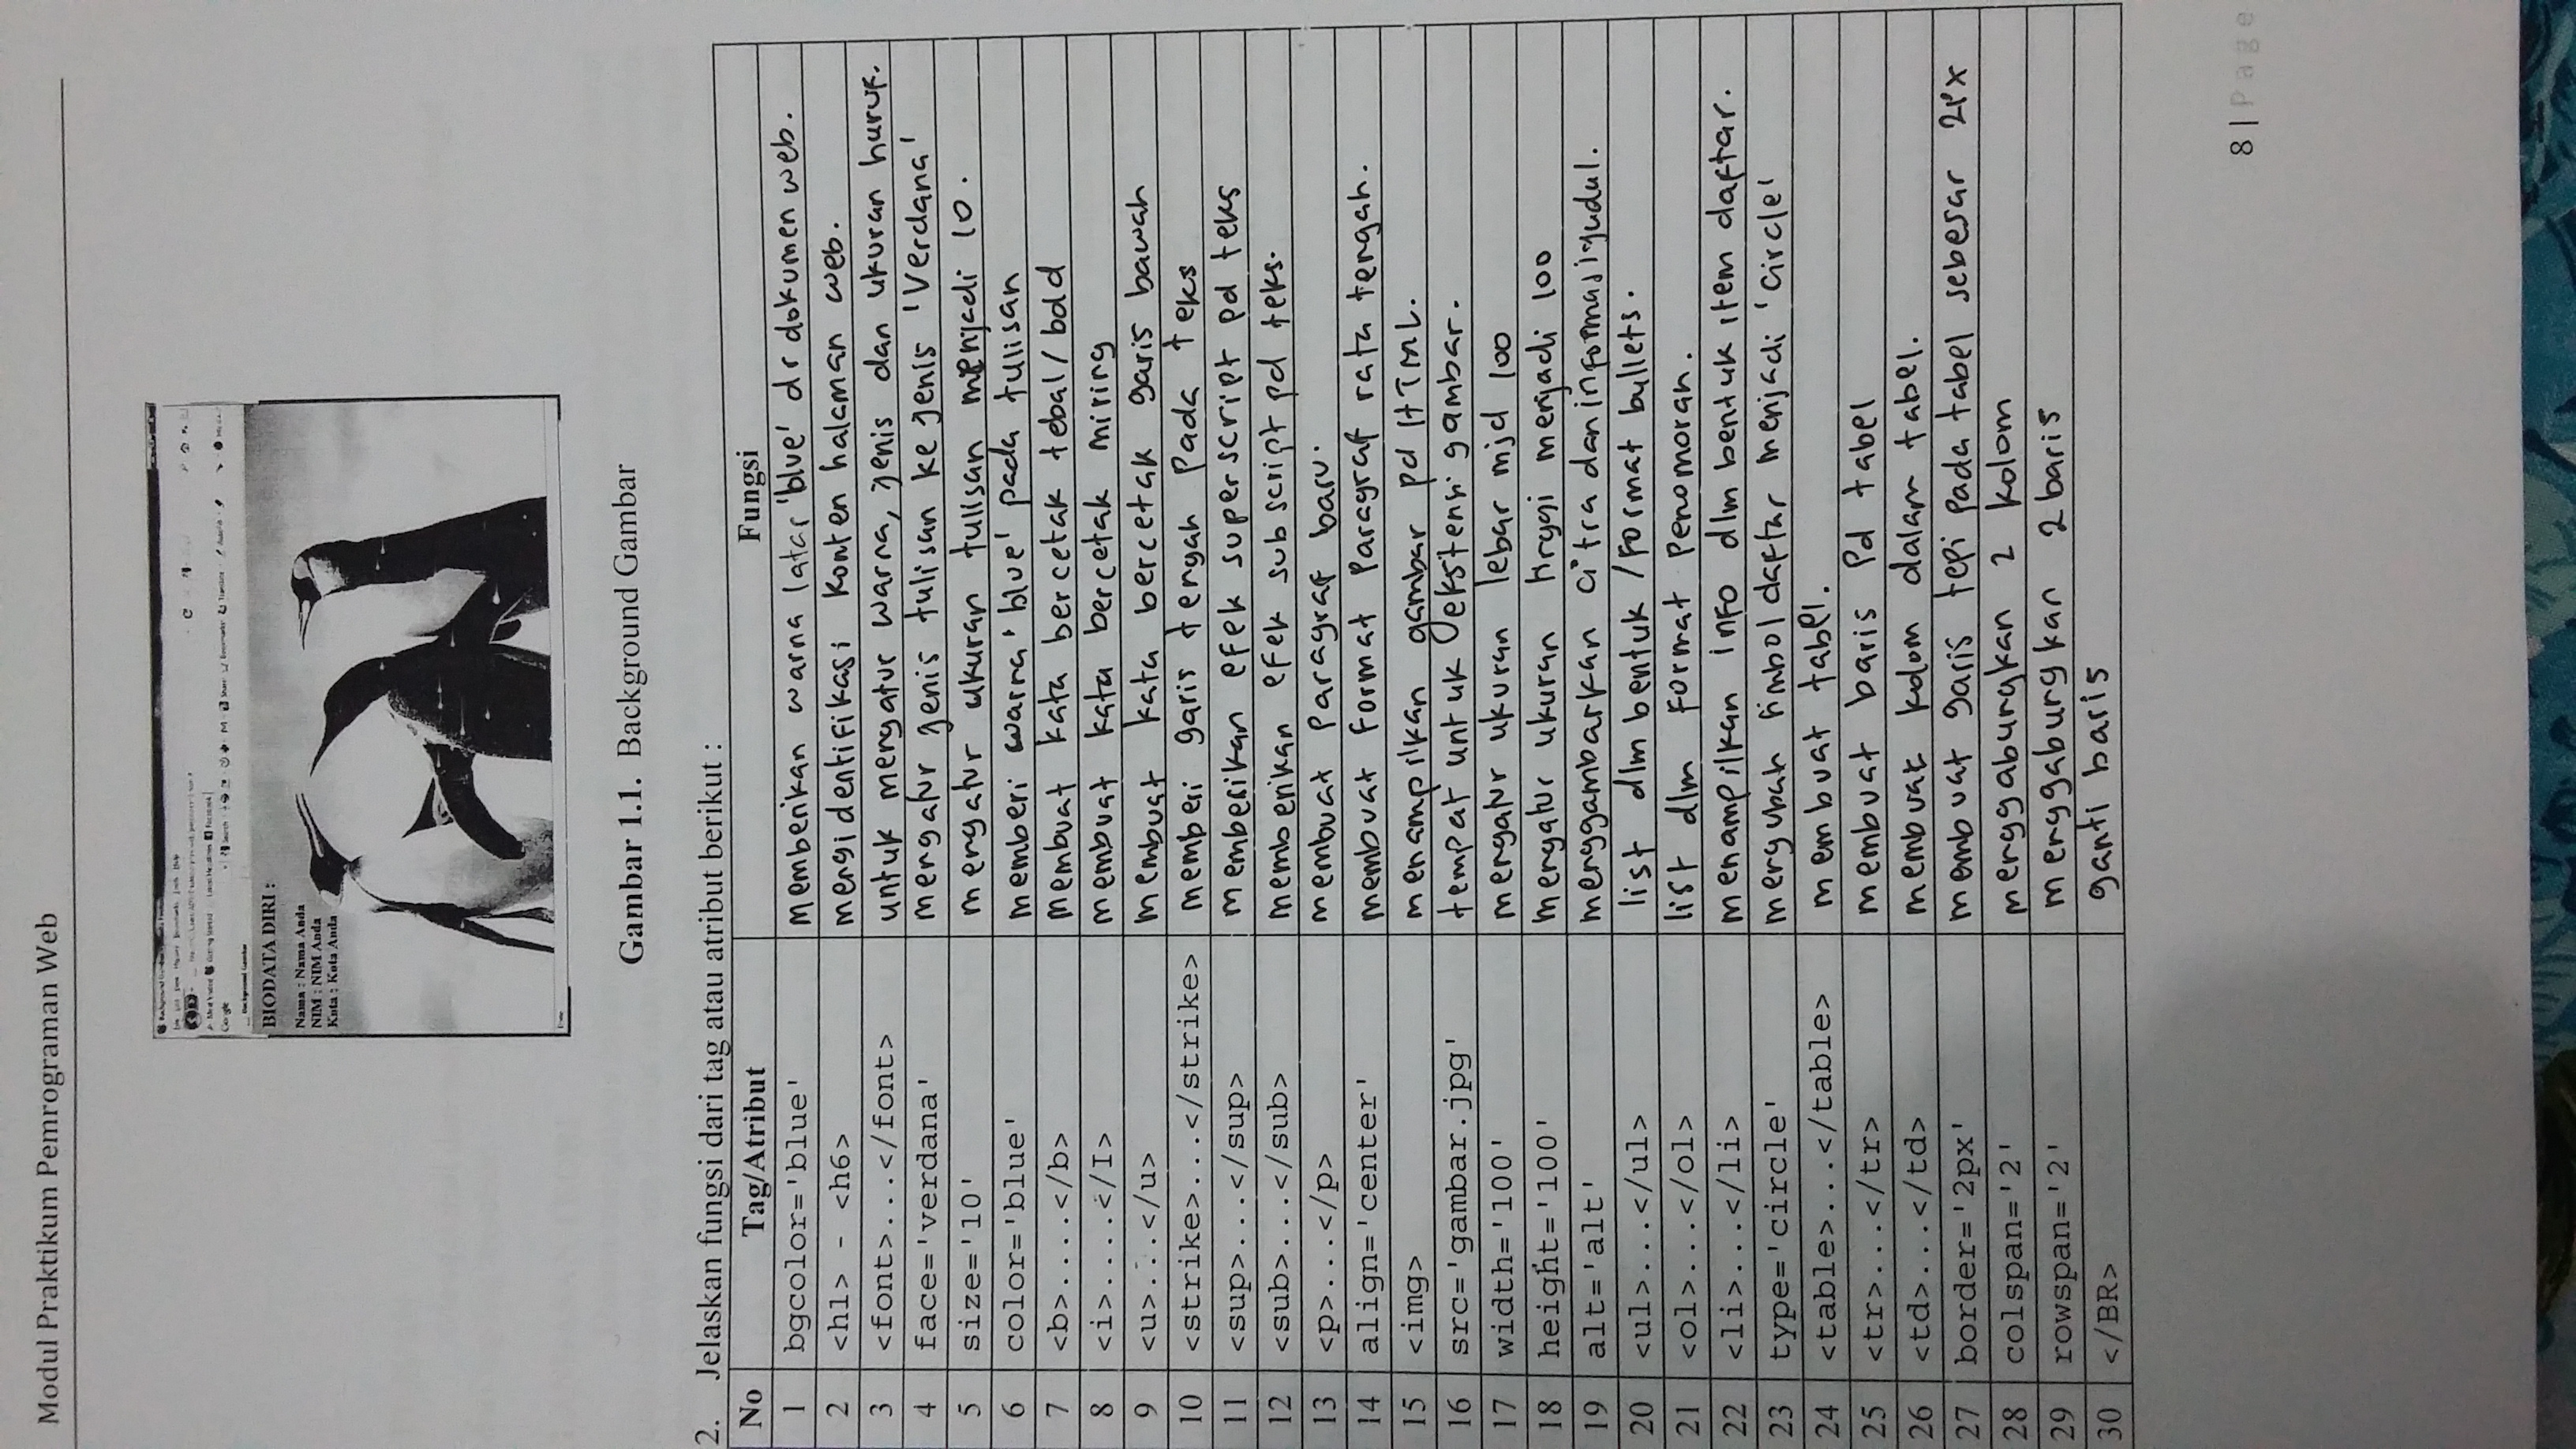 Modul Praktikum Pemrograman Web
Google
Background Gambar
BIODATA DIRI :
Nama : Nama Anda
NIM : NIM Anda
Kota : Kota Anda
Gambar 1.1. Background Gambar
2. Jelaskan fungsi dari tag atau atribut berikut :
No Tag/Atribut Fungsi
1 bgcolor='blue' memberikan warna latar 'blue' dr dokumen web.
2 <h1> - <h6> mengidentifikasi konten halaman web.
3 <font>...</font> untuk mengatur warna, jenis dan ukuran huruf.
4 face='verdana' mengatur jenis tulisan ke jenis 'Verdana'
5 size='10' mengatur ukuran tulisan menjadi 10.
6 color='blue' memberi warna 'blue' pada tulisan
7 <b>....</b> membuat kata bercetak tebal/bold
8 <i>....</I> membuat kata bercetak miring
9 <u>...</u> membuat kata bercetak garis bawah
10 <strike>...</strike> memberi garis tengah pada teks
11 <sup>...</sup> memberikan efek superscript pd teks
12 <sub>...</sub> memberikan efek subscript pd teks.
13 <p>...</p> membuat paragraf baru.
14 align='center' membuat format paragraf rata tengah.
15 <img> menampilkan gambar pd HTML.
16 src='gambar.jpg' tempat untuk ekstensi gambar.
17 width='100' mengatur ukuran lebar mjd 100
18 height='100' mengatur ukuran tinggi menjadi 100
19 alt='alt' menggambarkan citra dan informasi judul.
20 <ul>...</ul> list dlm bentuk /format bullets.
21 <ol>...</ol> list dlm format penomoran.
22 <li>...</li> menampilkan info dlm bentuk item daftar.
23 type='circle' mengubah simbol daftar menjadi 'circle'
24 <table>...</table> membuat tabel.
25 <tr>...</tr> membuat baris pd tabel
26 <td>...</td> membuat kolom dalam tabel.
27 border='2px' membuat garis tepi pada tabel sebesar 2px
28 colspan='2' menggabungkan 2 kolom
29 rowspan='2' menggabungkan 2 baris
30 </BR> ganti baris
8 | Page